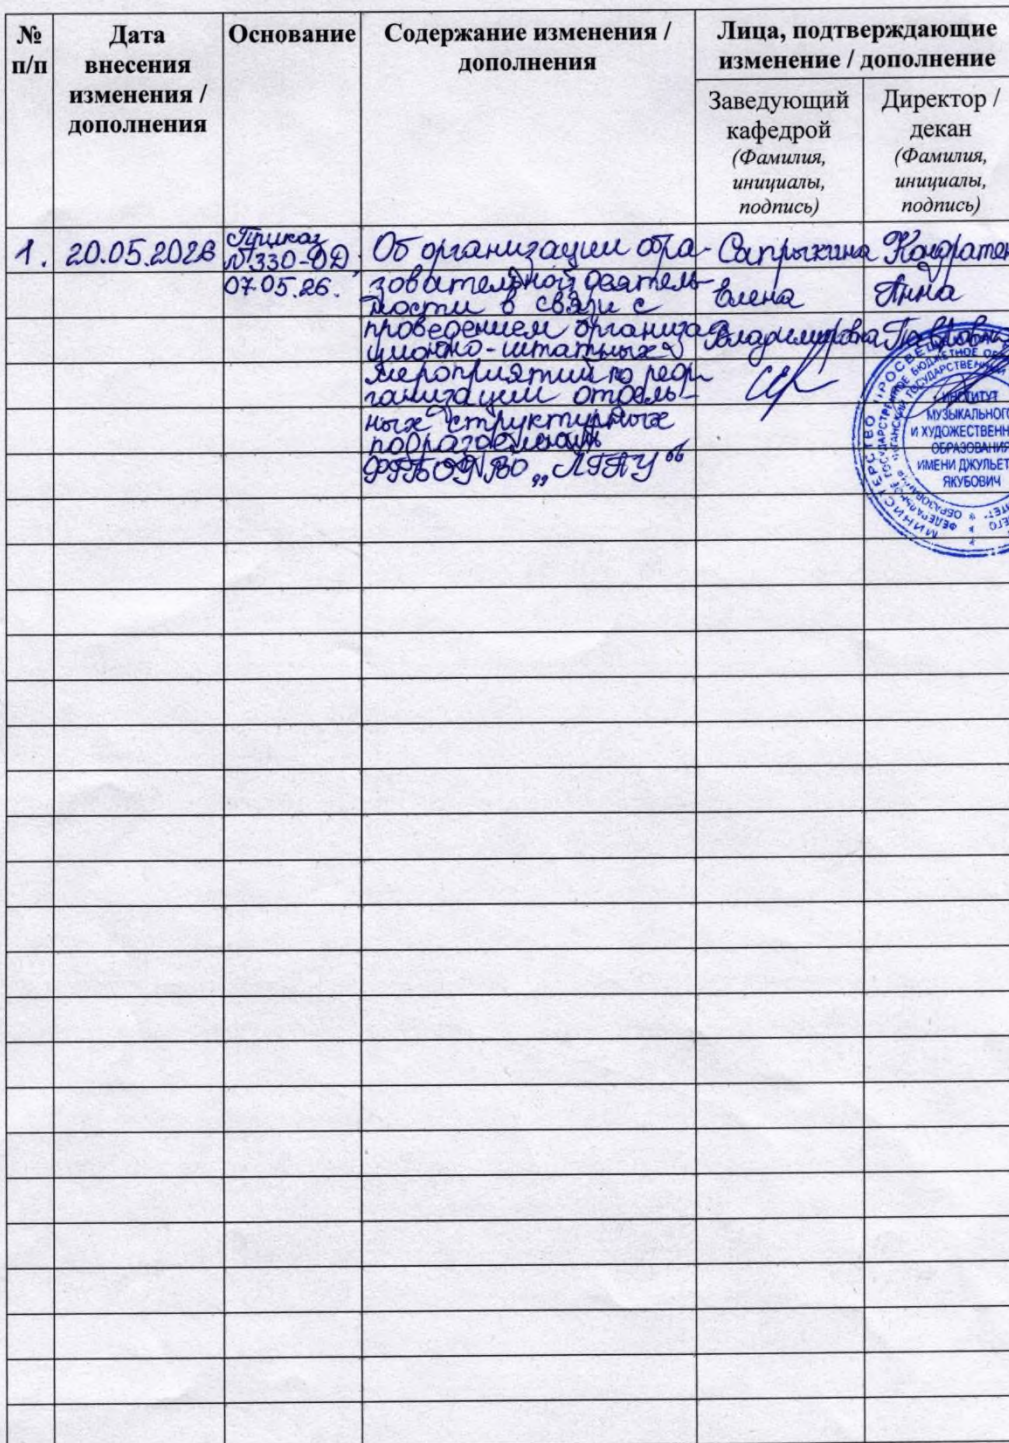 № п/п
Дата внесения изменения / дополнения
Основание
Содержание изменения / дополнения
Лица, подтверждающие изменение / дополнение
Заведующий кафедрой (Фамилия, инициалы, подпись)
Директор / декан (Фамилия, инициалы, подпись)
1.
20.05.2026
Приказ
№330-ОД
07.05.26.
Об организации обра-
зовательной деятель-
ности в связи с
проведением организа
ционно-штатных
мероприятий по реор-
ганизации отдель-
ных структурных
подразделений
ФГБОУ ВО „ЛГПУ“
Сапрыкина
Елена
Владимировна
Кондратен
Анна
Павловна
ИНСТИТУТ
МУЗЫКАЛЬНОГО
И ХУДОЖЕСТВЕНН
ОБРАЗОВАНИЯ
ИМЕНИ ДЖУЛЬЕТ
ЯКУБОВИЧ